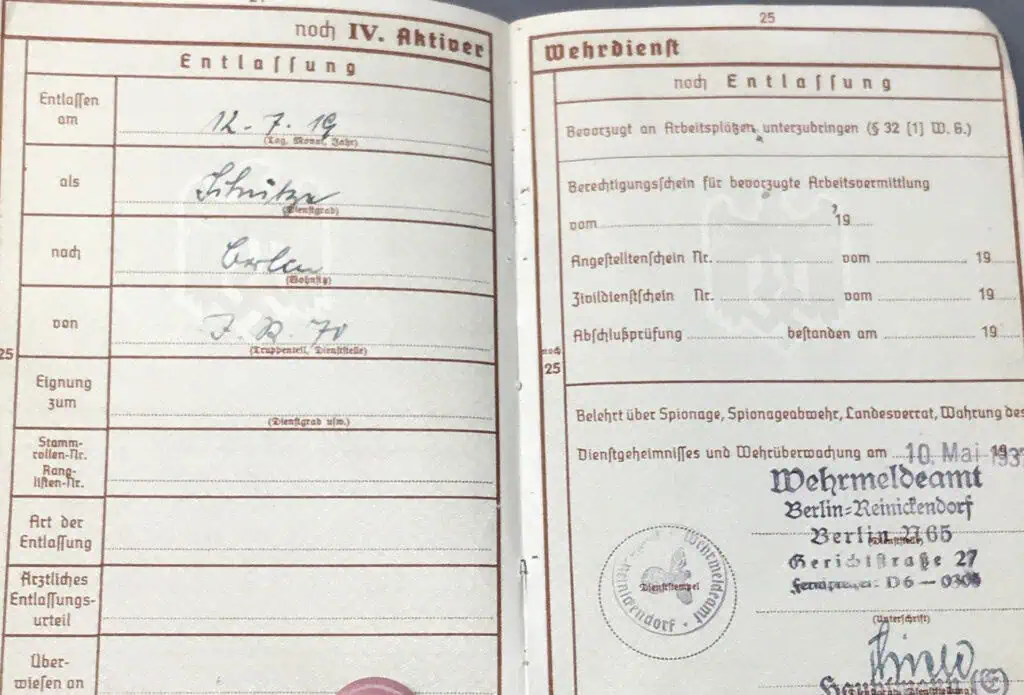 noch IV. Aktiver
Entlassung
Entlassen am
12. 7. 19
(Tag, Monat, Jahr)
als
Schütze
(Dienstgrad)
nach
Berlin
(Wohnsitz)
von
J. R. 70
(Truppenteil, Dienststelle)
25
Eignung zum
(Dienstgrad usw.)
Stamm-
rollen-Nr.
Rang-
listen-Nr.
Art der
Entlassung
Ärztliches
Entlassungs-
urteil
Über-
wiesen an
25
Wehrdienst
noch Entlassung
Bevorzugt an Arbeitsplätzen unterzubringen (§ 32 [1] W. G.)
Berechtigungsschein für bevorzugte Arbeitsvermittlung
vom 19
Angestelltenschein Nr. vom 19
Zivildienstschein Nr. vom 19
Abschlußprüfung bestanden am 19
noch
25
Belehrt über Spionage, Spionageabwehr, Landesverrat, Wahrung des
Dienstgeheimnisses und Wehrüberwachung am 10. Mai 193
Wehrmeldeamt
Berlin-Reinickendorf
Berlin N 65
Gerichtstraße 27
Fernsprecher: D 6 — 0304
Wehrmeldeamt
Reinickendorf
Dienststempel
(Unterschrift)
Hauptmann